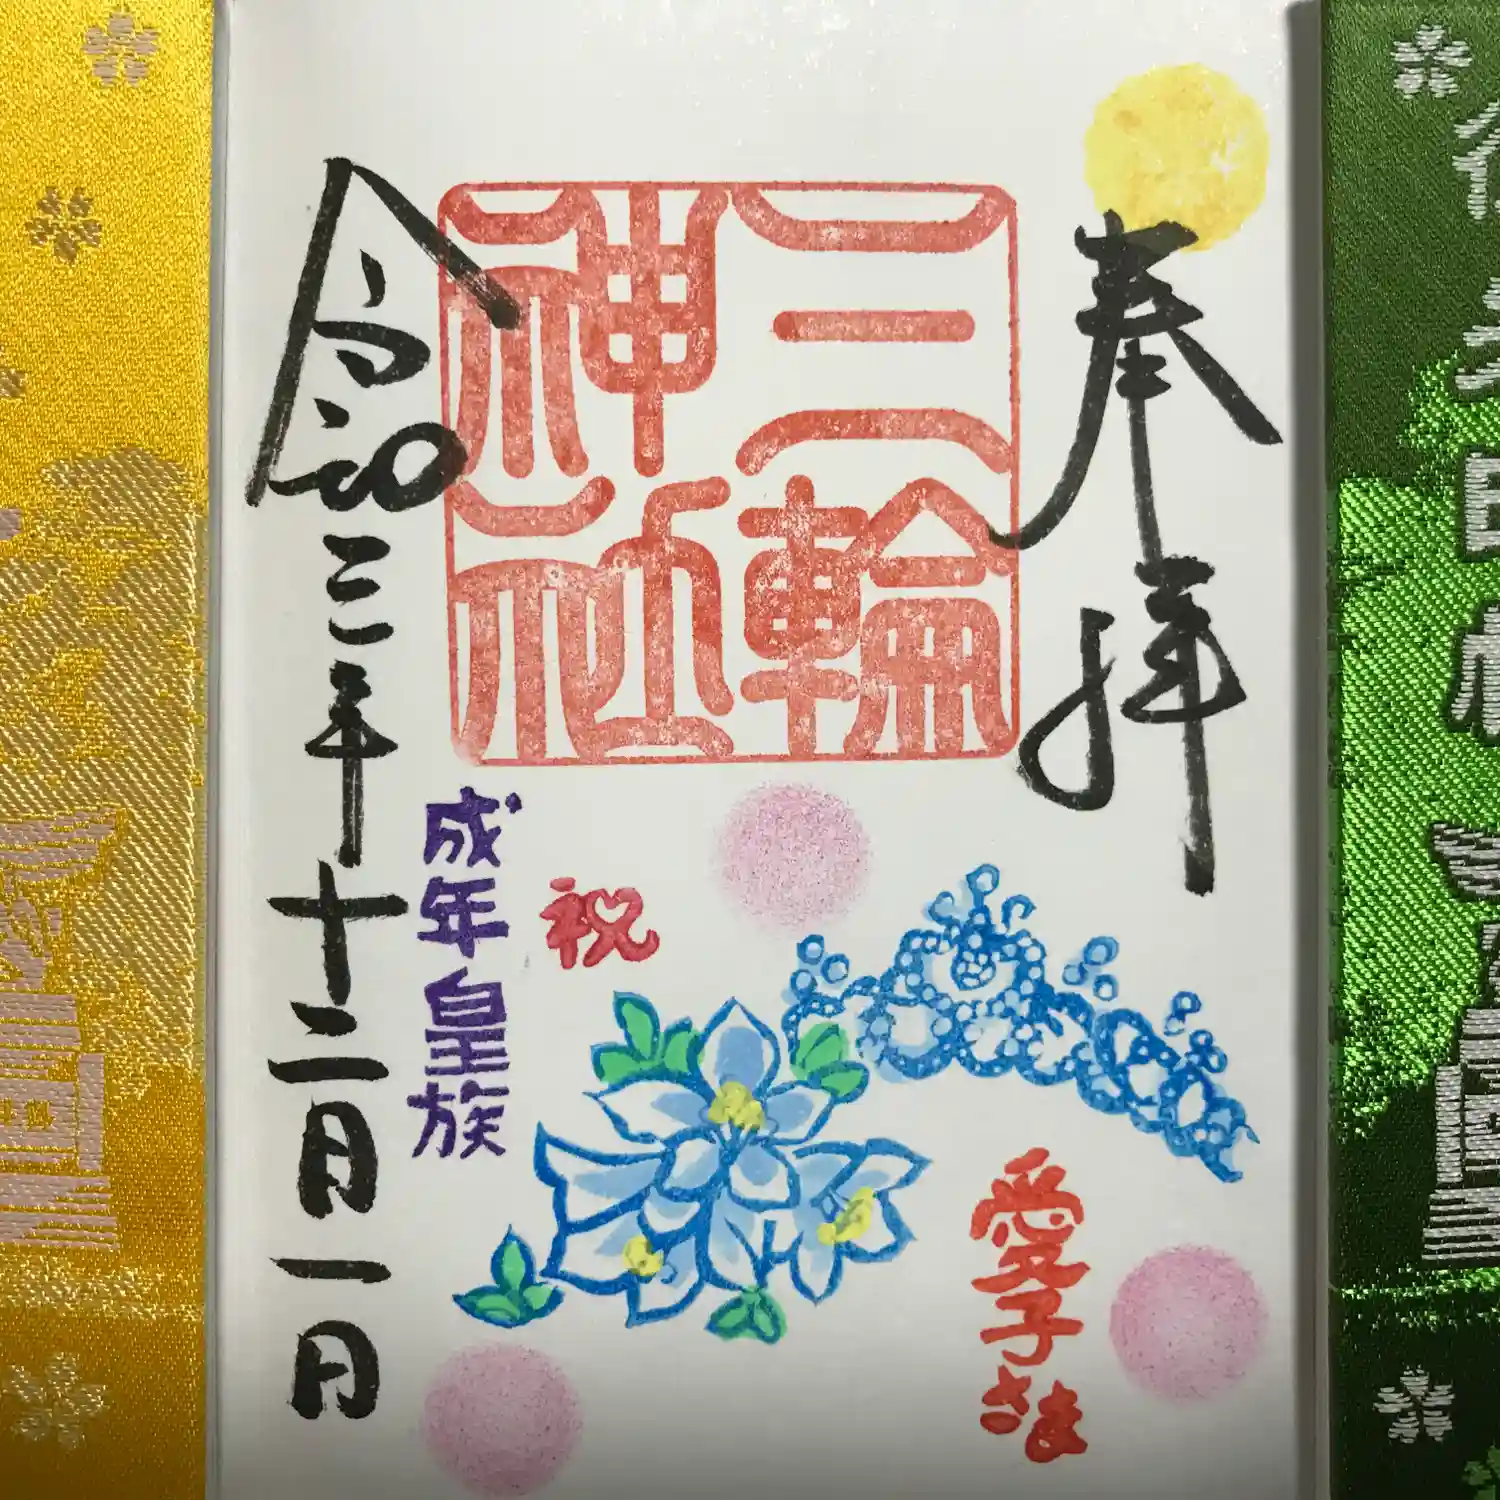 奉拝
三輪
神社
令和三年十二月一日
祝
成年皇族
愛子さま